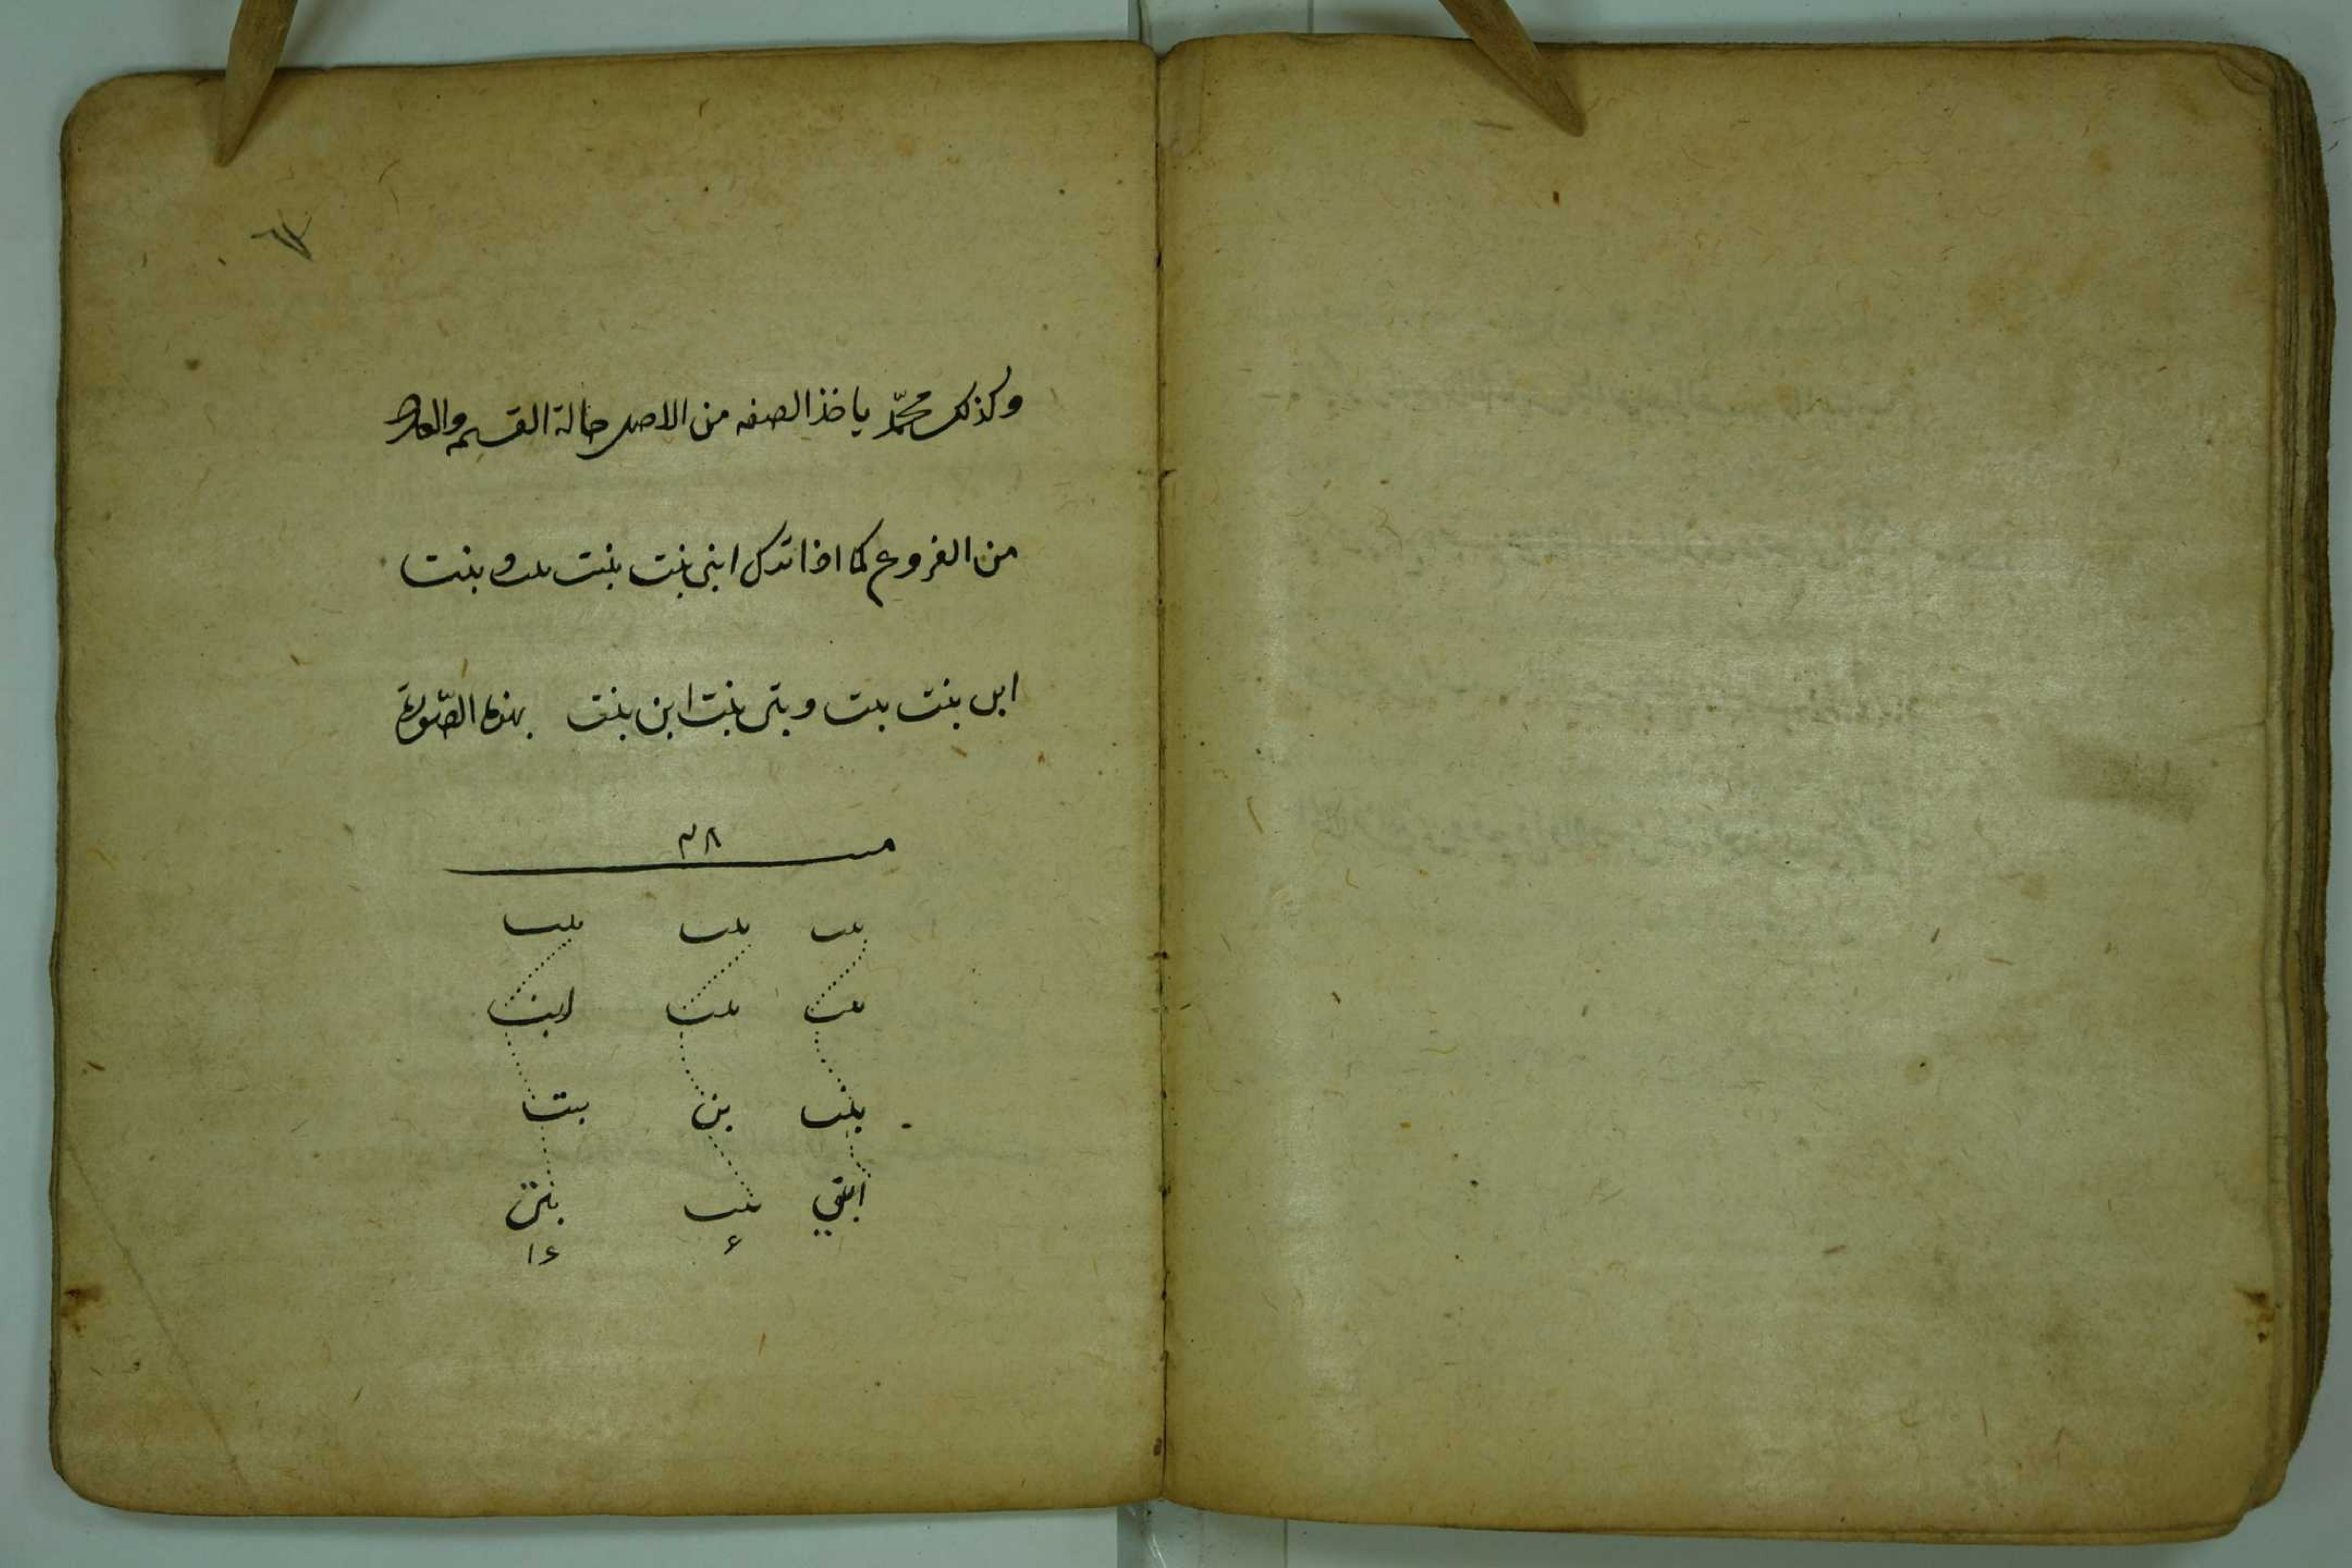 وكذلك محمّد ياخذ الصفه من الاصل حالة القسم والعدد
من الفروع كما اذا ترك ابنى بنت بنت بنت و بنت
ابن بنت بنت و بنتى بنت ابن بنت بهذه الصّورة
٢٨
بنت بنت بنت
بنت بنت ابن
بنت بن بنت
ابنى بنت بنتى
٦ ١٦